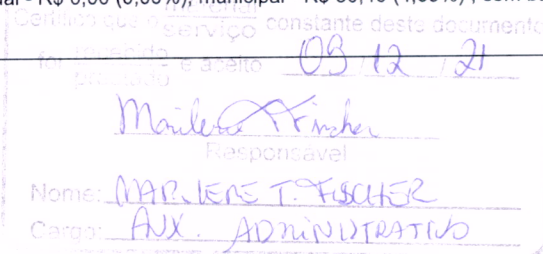 R$ 0,00 (0,00%), municipal
Certifico que o serviço constante deste documento
foi recebido prestado e aceito 09 / 12 / 21
Marilene T. Fischer
Responsável
Nome: MARILENE T. FISCHER
Cargo: AUX. ADMINISTRATIVO